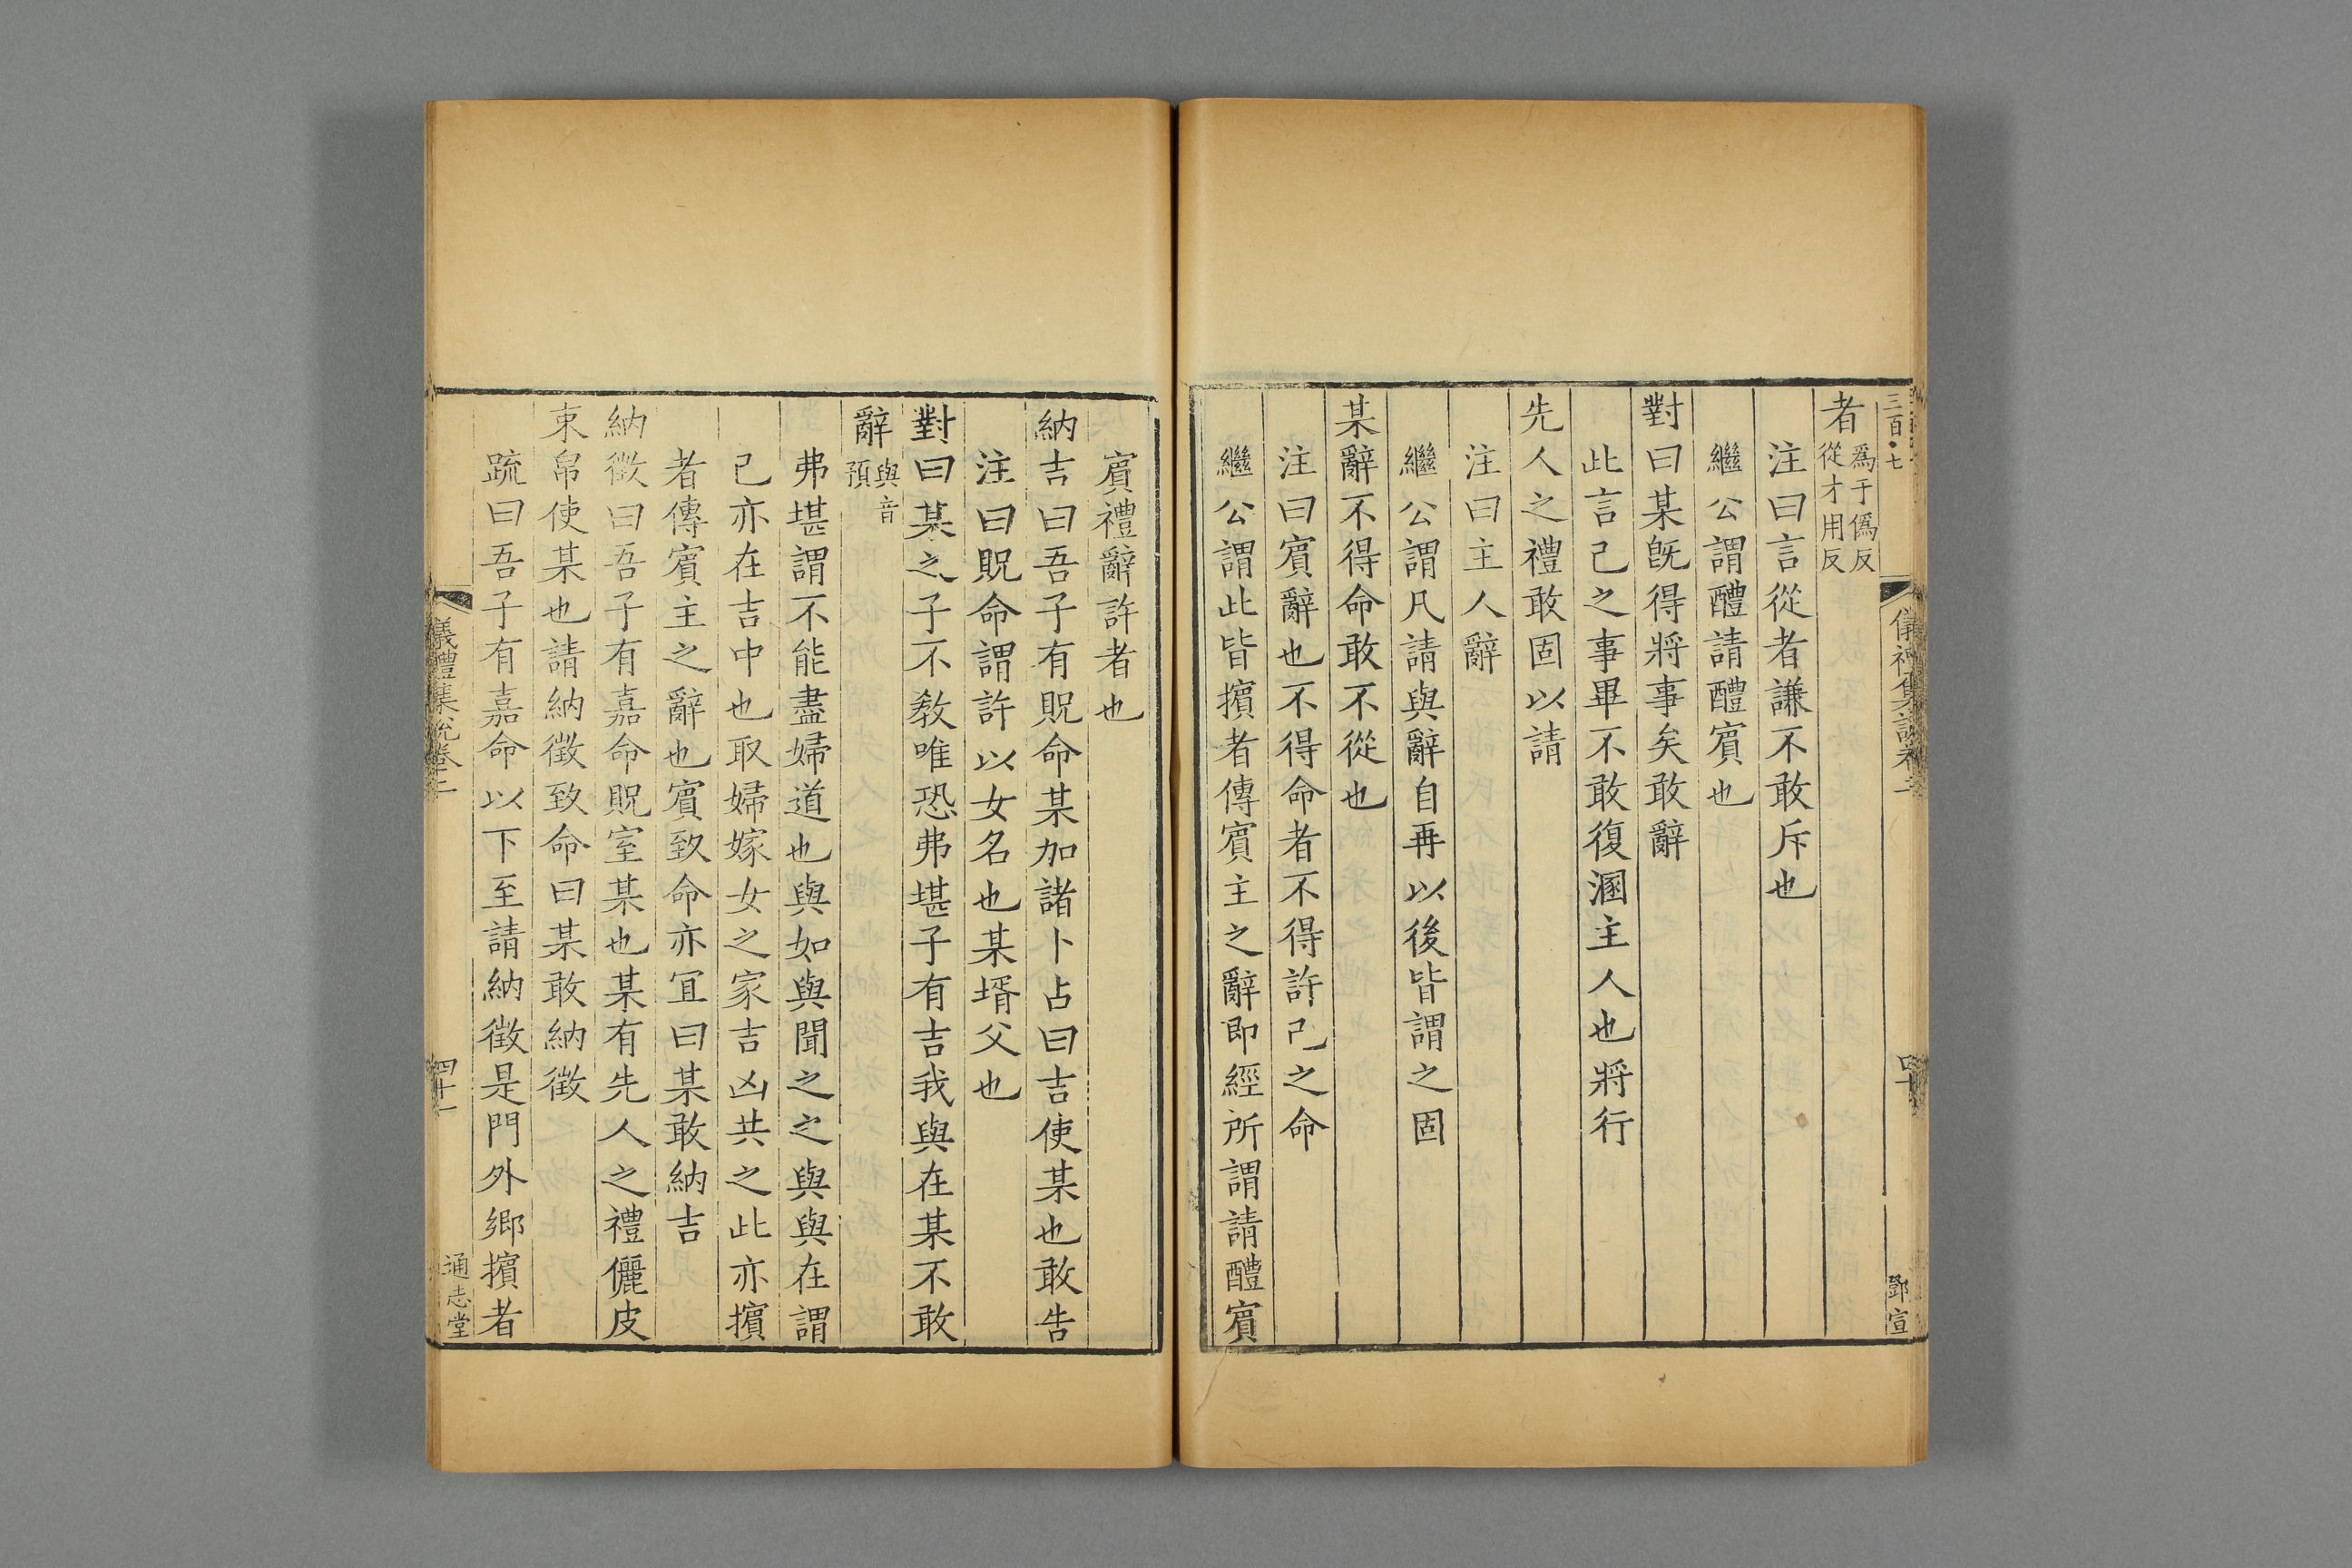 三百七
儀禮集說卷二
四十
鄧宣
者爲于僞反從才用反
注曰言從者謙不敢斥也
繼公謂醴請醴賔也
對曰某旣得將事矣敢辭
此言己之事畢不敢復溷主人也將行
先人之禮敢固以請
注曰主人辭
繼公謂凡請與辭自再以後皆謂之固
某辭不得命敢不從也
注曰賔辭也不得命者不得許己之命
繼公謂此皆擯者傳賔主之辭即經所謂請醴賔
賔禮辭許者也
納吉曰吾子有貺命某加諸卜占曰吉使某也敢告
注曰貺命謂許以女名也某壻父也
對曰某之子不敎唯恐弗堪子有吉我與在某不敢
辭與音預
弗堪謂不能盡婦道也與如與聞之之與與在謂
己亦在吉中也取婦嫁女之家吉凶共之此亦擯
者傳賔主之辭也賔致命亦宜曰某敢納吉
納徵曰吾子有嘉命貺室某也某有先人之禮儷皮
束帛使某也請納徵致命曰某敢納徵
疏曰吾子有嘉命以下至請納徵是門外鄉擯者
儀禮集說卷二
四十一
通志堂